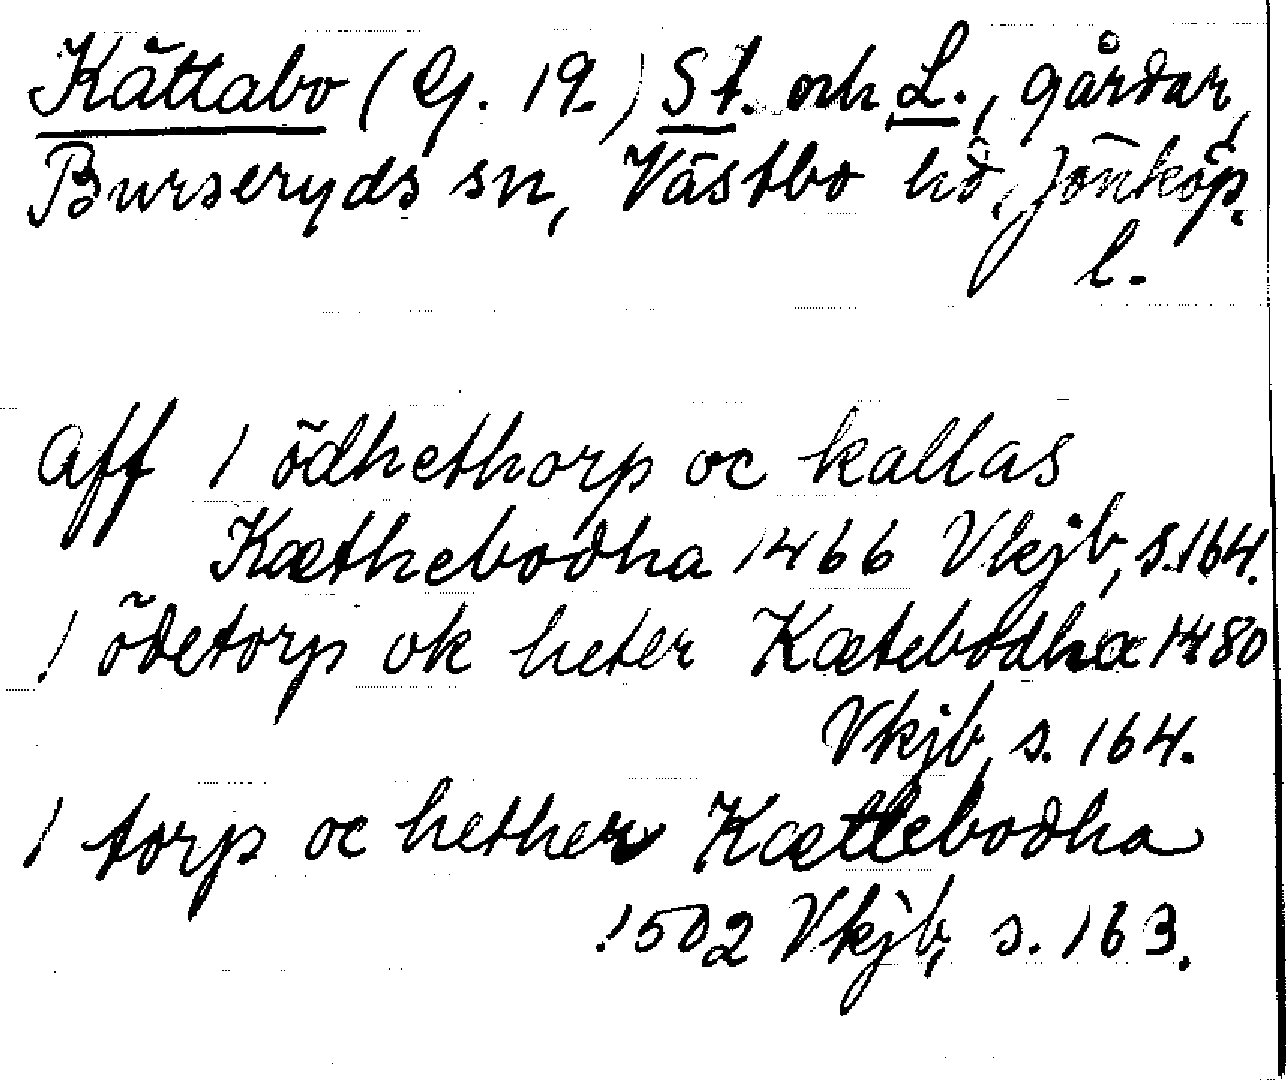 Kättabo (G. 19.) St. och L., gårdar,
Burseryds sn, Västbo hd, Jönköp.
l.
Aff 1 ödhethorp oc kallas
Kæthebodha 1466 Vkjb, s. 164.
1 ödetorp ok heter Kætebodha 1480
Vkjb, s. 164.
1 torp oc hether Kættebodha
1502 Vkjb, s. 163.